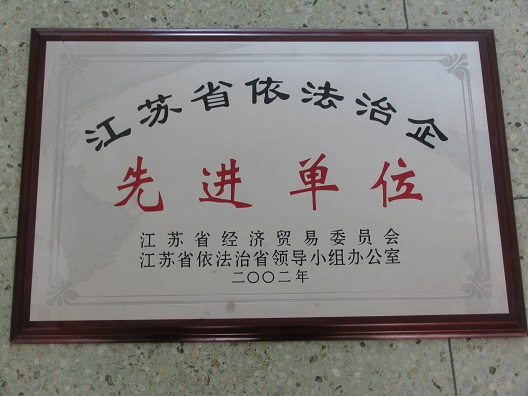 江苏省依法治企
先进单位
江苏省经济贸易委员会
江苏省依法治省领导小组办公室
二〇〇二年